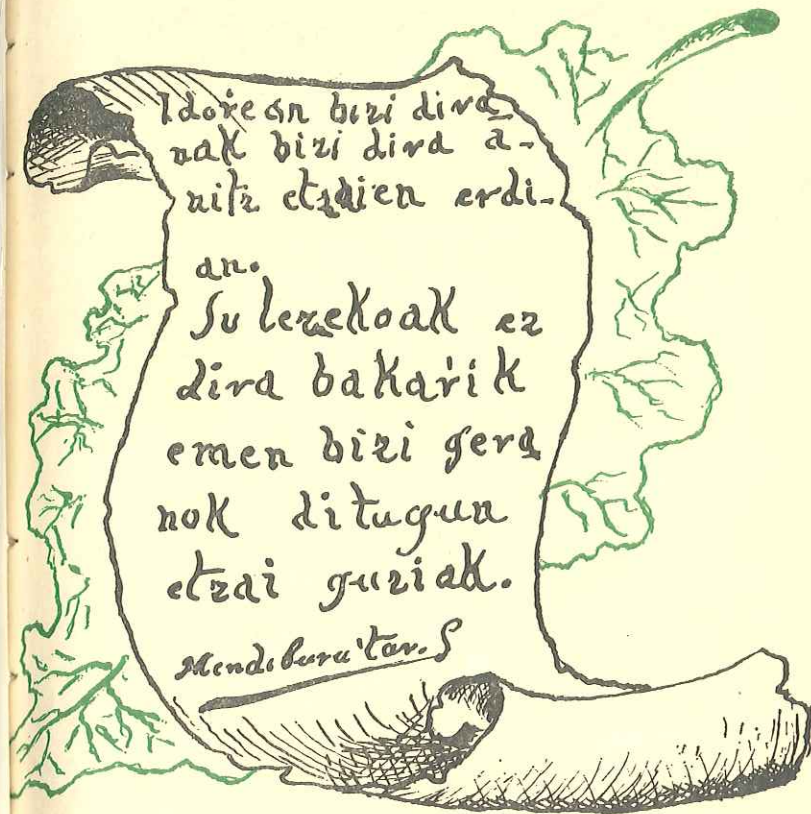 Idořean bizi dira-
nak bizi dira a-
nitz etzaien erdi-
an.
Su lezekoak ez
dira bakařik
emen bizi gera
nok ditugun
etzai guziak.
Mendeburu'tar. S